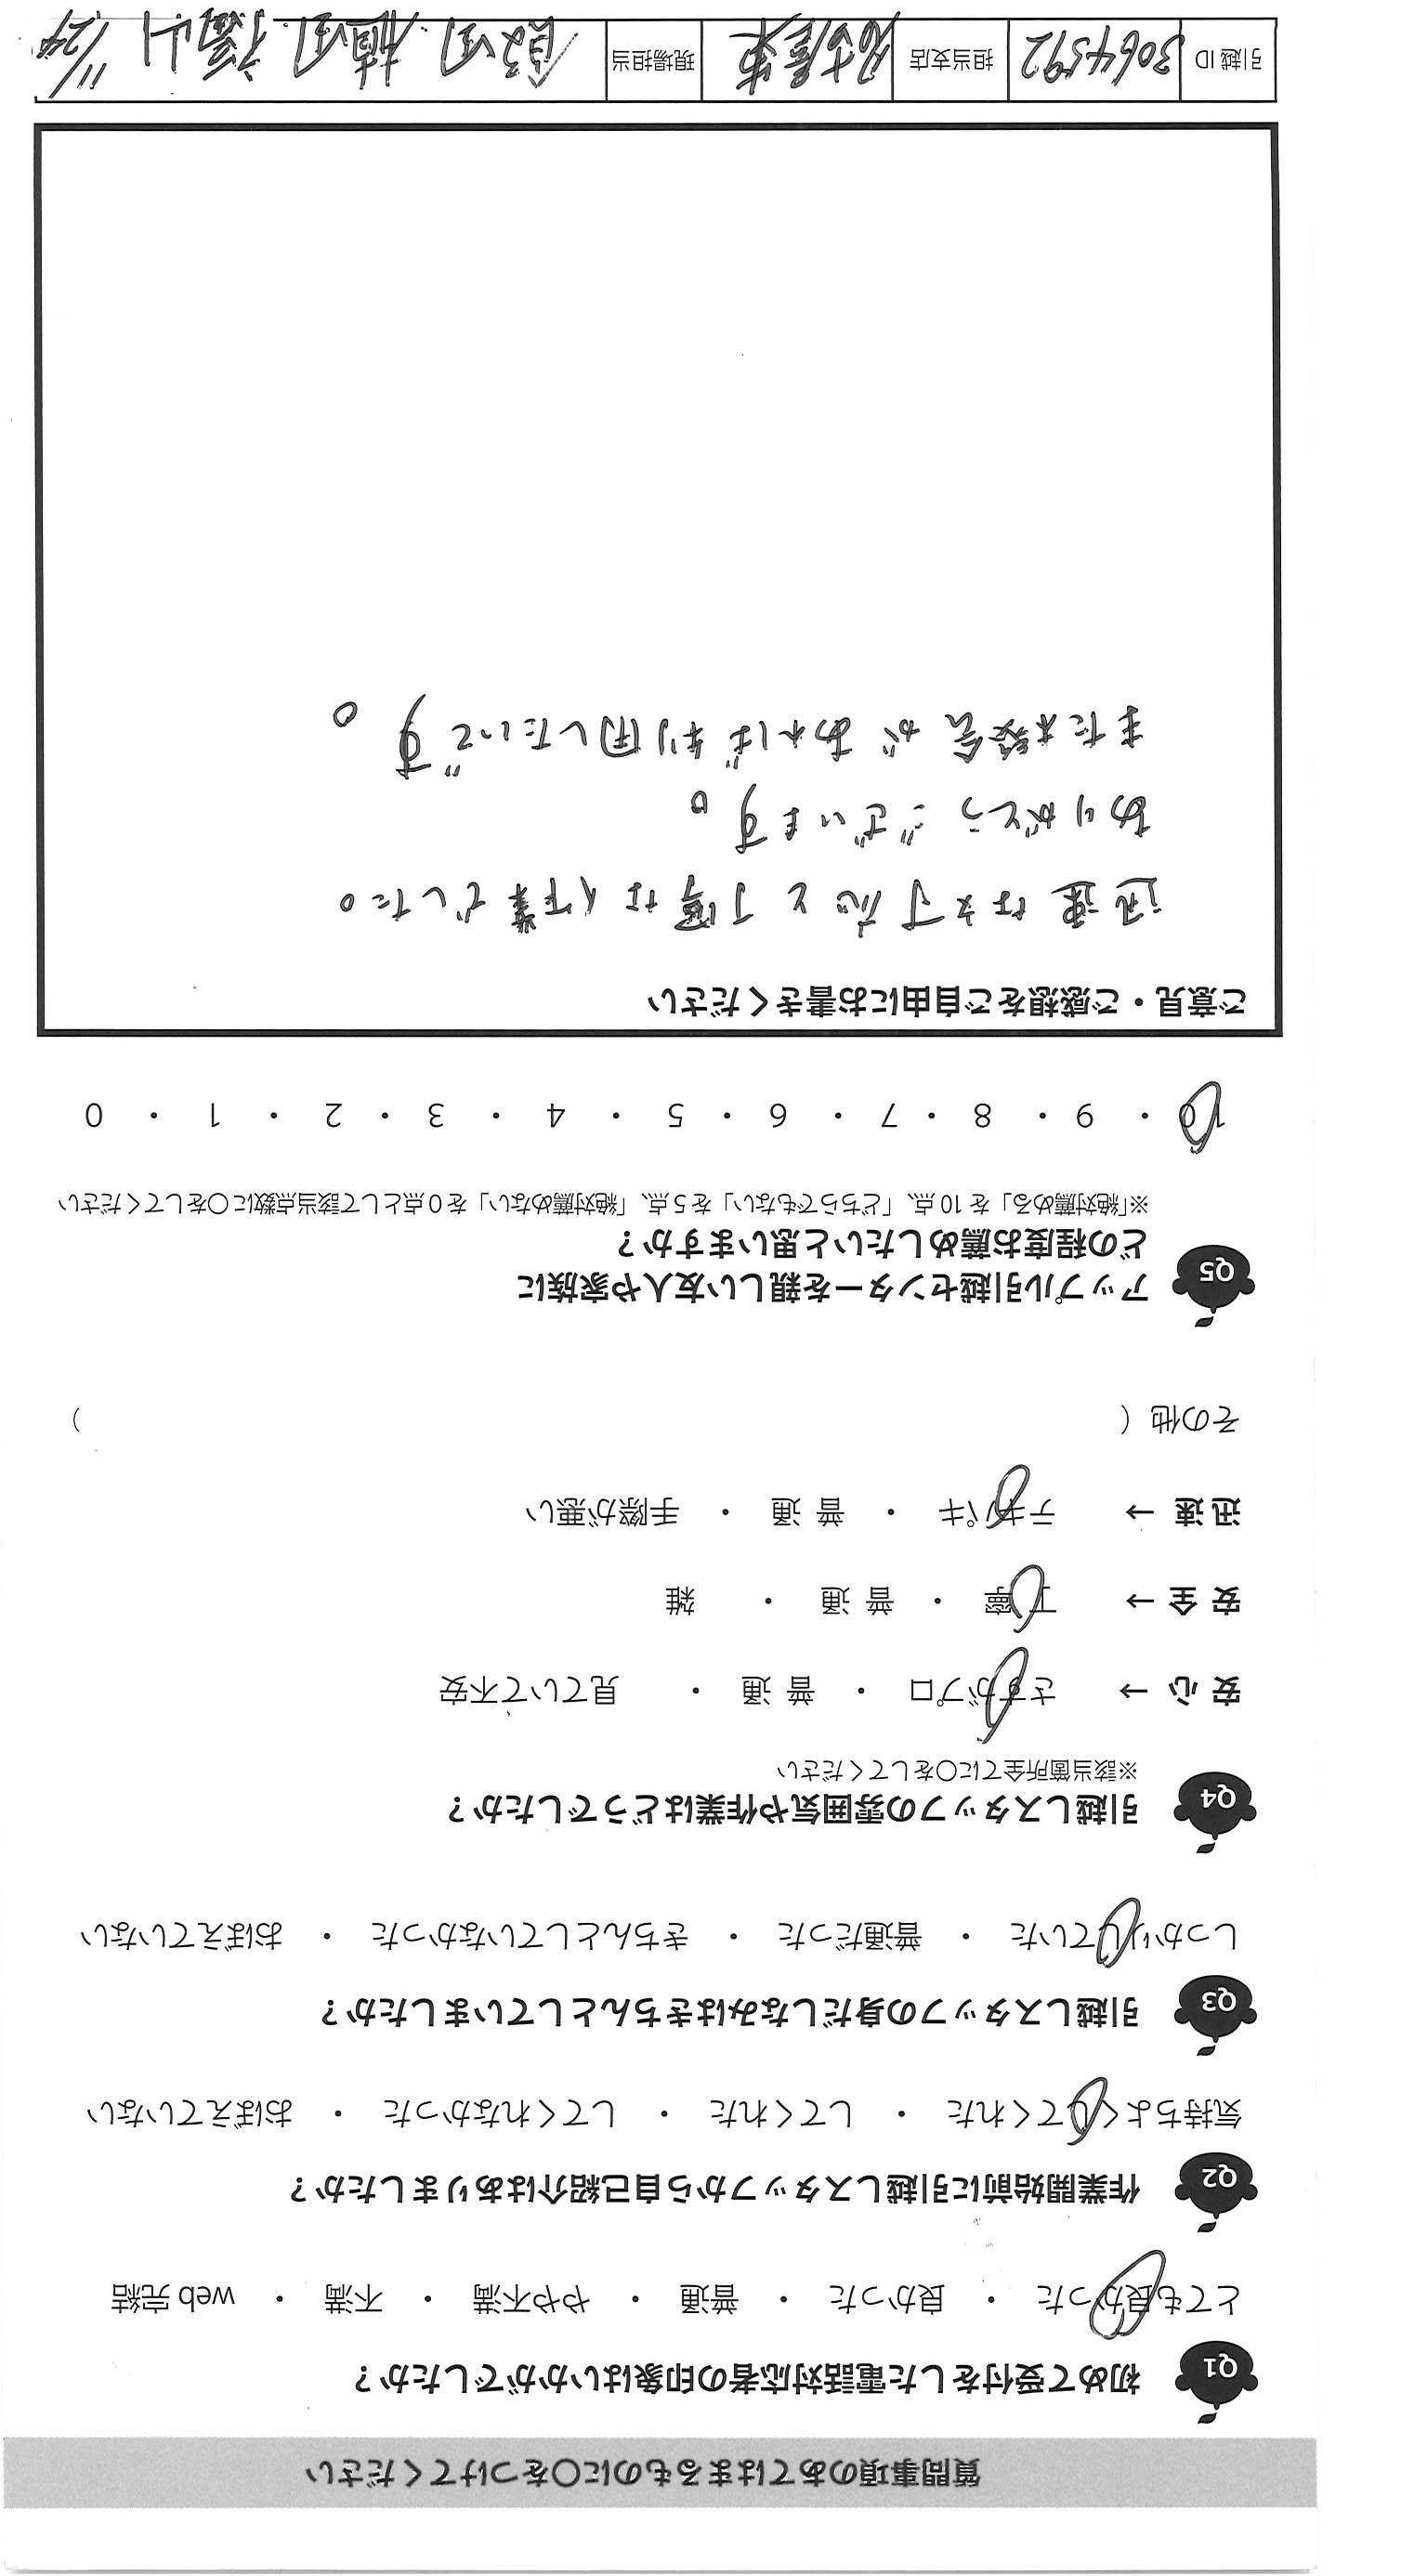 質問事項のあてはまるものに○をつけてください
Q1 初めて受付をした電話対応者の印象はいかがでしたか？
とても良かった ・ 良かった ・ 普通 ・ やや不満 ・ 不満 ・ web 完結
Q2 作業開始前に引越しスタッフから自己紹介はありましたか？
気持ちよくしてくれた ・ してくれた ・ してくれなかった ・ おぼえていない
Q3 引越しスタッフの身だしなみはきちんとしていましたか？
しっかりしていた ・ 普通だった ・ きちんとしていなかった ・ おぼえていない
Q4 引越しスタッフの雰囲気や作業はどうでしたか？
※該当箇所全てに○をしてください
安心 → さすがプロ ・ 普通 ・ 見ていて不安
安全 → 丁寧 ・ 普通 ・ 雑
迅速 → テキパキ ・ 普通 ・ 手際が悪い
その他（ ）
Q5 アップル引越センターを親しい友人や家族に
どの程度お薦めしたいと思いますか？
※「絶対薦める」を 10 点、「どちらでもない」を 5 点、「絶対薦めない」を 0 点として該当点数に○をしてください
10 ・ 9 ・ 8 ・ 7 ・ 6 ・ 5 ・ 4 ・ 3 ・ 2 ・ 1 ・ 0
ご意見・ご感想をご自由にお書きください
迅速な対応と丁寧な作業でした。
ありがとうございます。
また機会があれば利用したいです。
引越 ID 3064592 担当支店 名古屋東 現場担当 植田 福山 11/24